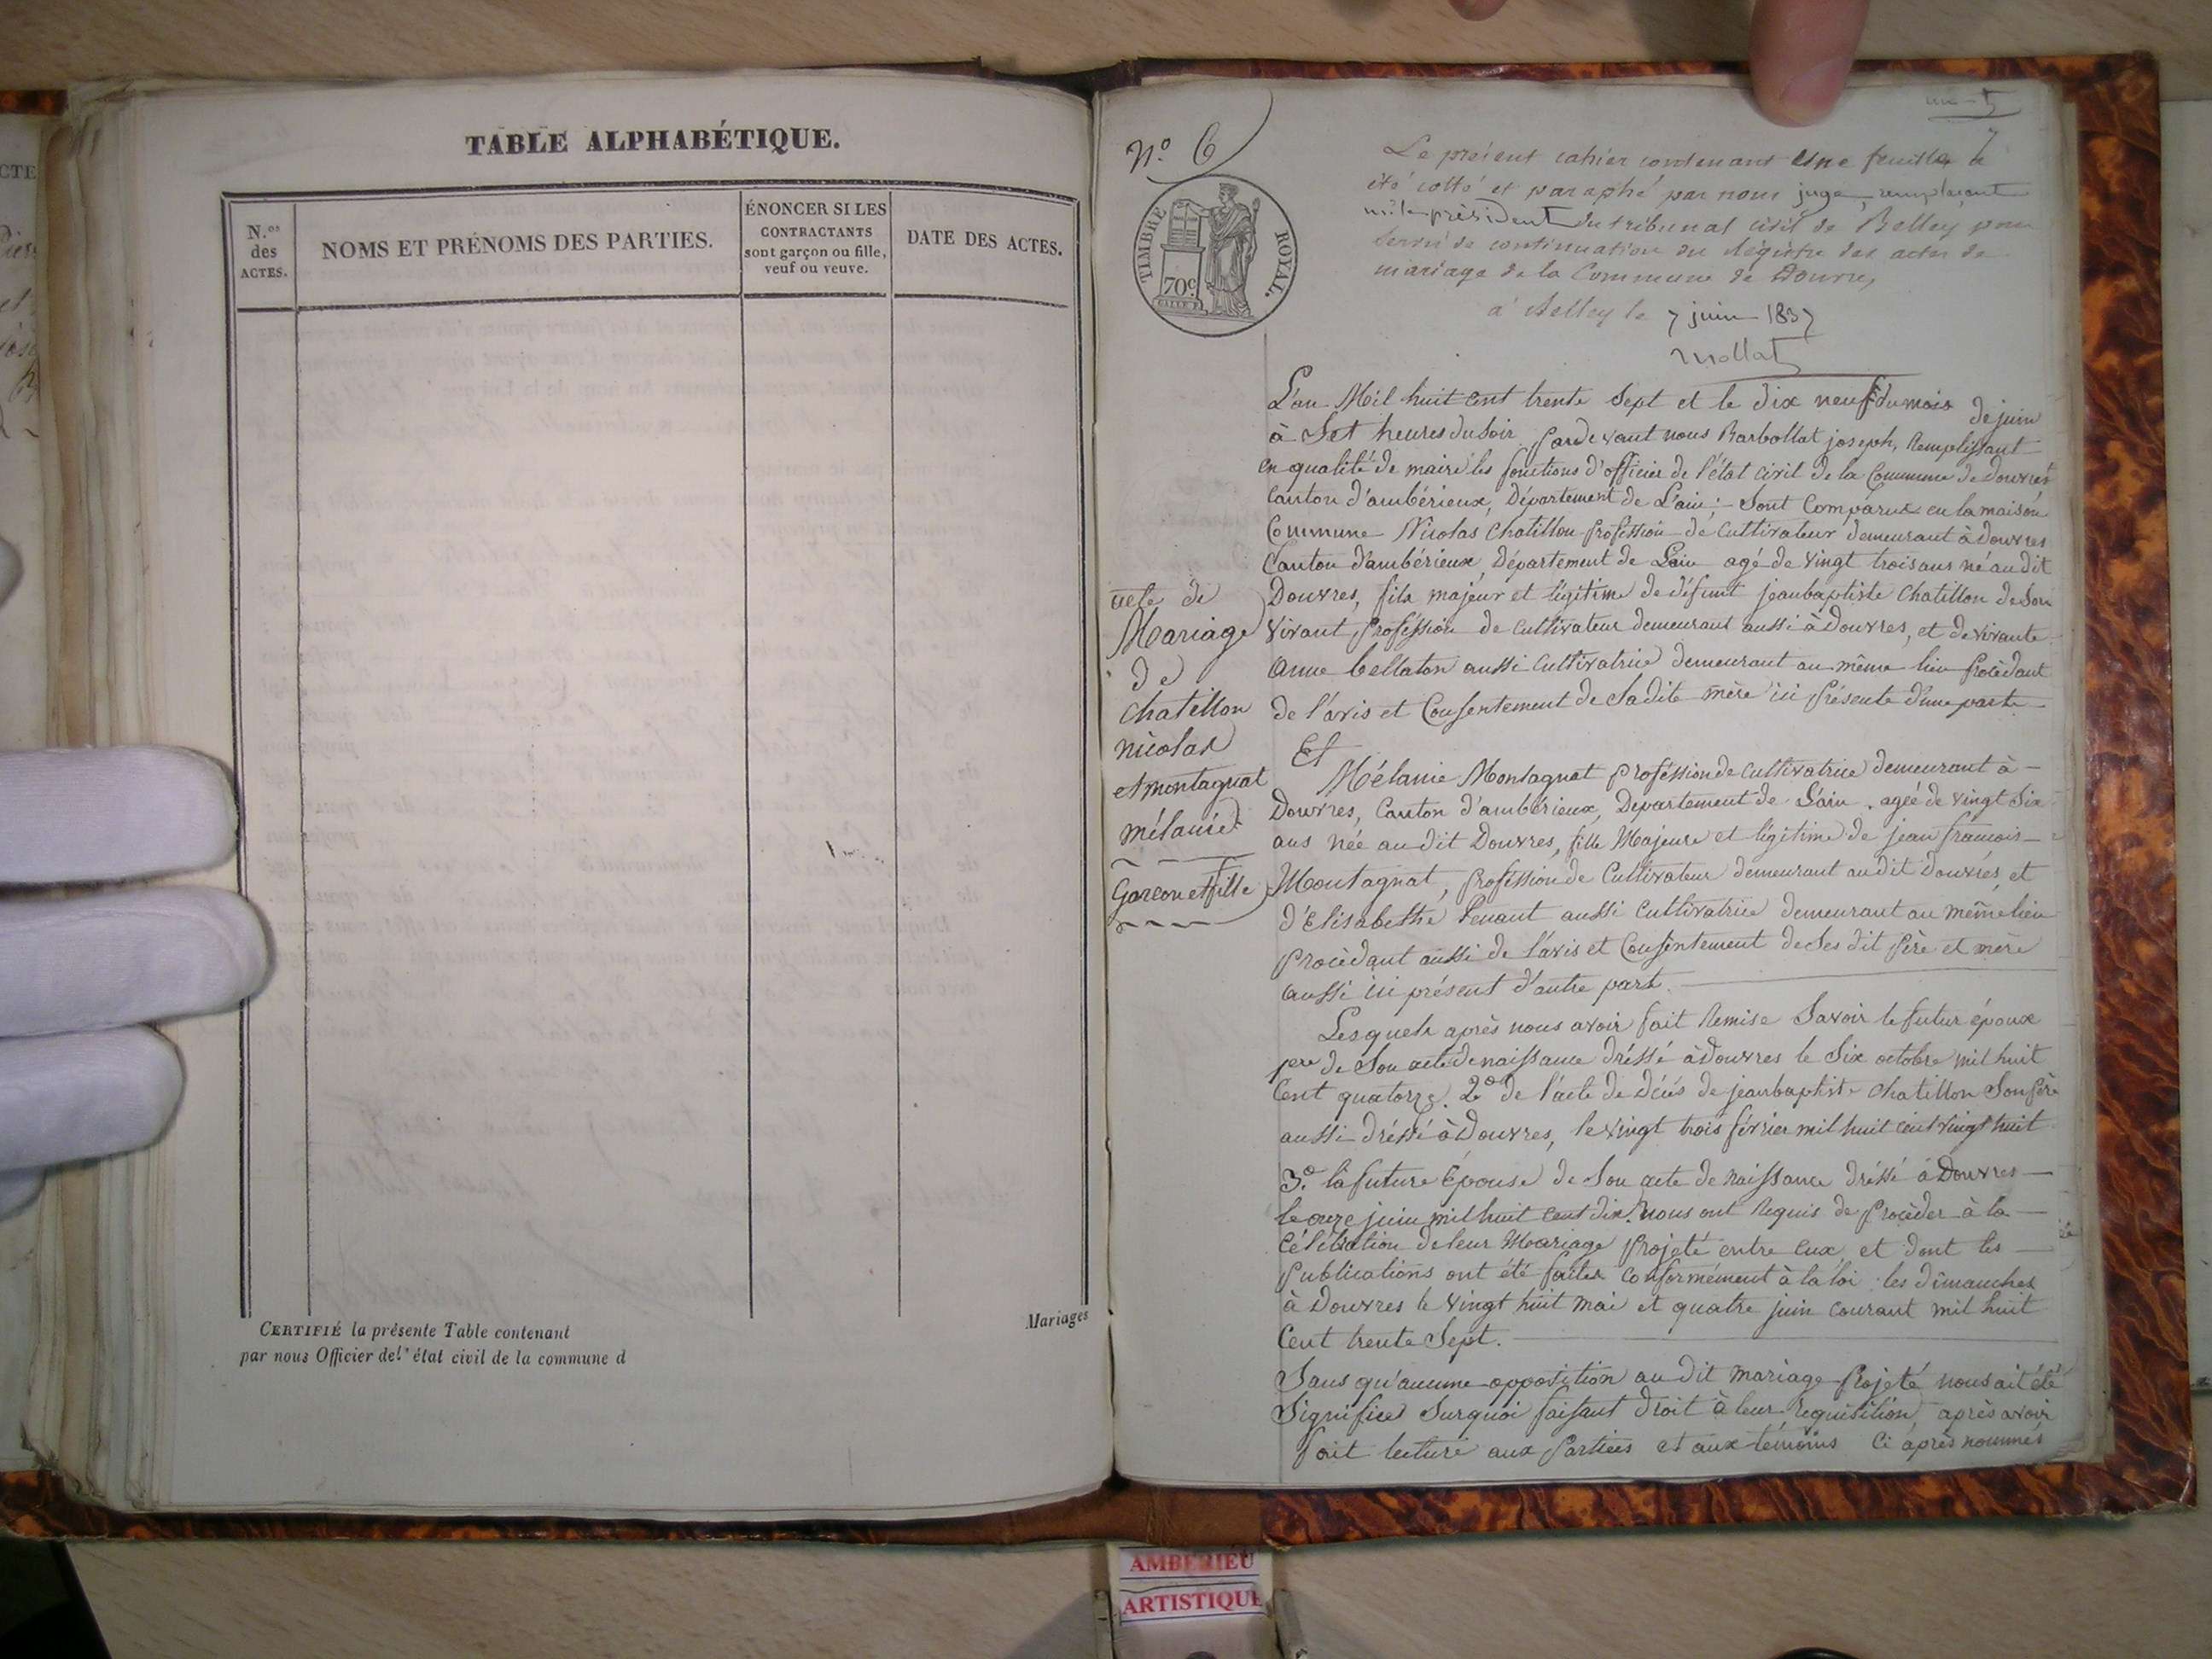 TABLE ALPHABÉTIQUE.
N.os des ACTES.
NOMS ET PRÉNOMS DES PARTIES.
ÉNONCER SI LES
CONTRACTANTS
sont garçon ou fille,
veuf ou veuve.
DATE DES ACTES.
CERTIFIÉ la présente Table contenant
par nous Officier de l'état civil de la commune d
Mariages
N.º 6
TIMBRE ROYAL.
70c
Le présent cahier contenant une feuille a
été cotté et paraphé par nous juge, remplaçant
mr le président du tribunal civil de Belley pour
servir de continuation du Régistre des actes de
mariage de la Commune de Douvres,
à Belley le 7 juin 1837
Mollat
acte de
Mariage
de
chatillon
nicolas
et montagnat
mélanie
Garcon et fille
L'an Mil huit cent trente Sept et le dix neuf du mois de juin
à Set heures du Soir Pardevant nous Barbollat joseph, Remplissant
en qualité de maire les fonctions d'officier de l'état civil de la Commune de Douvres
Canton d'ambérieux, Département de L'ain; Sont Comparus en la maison
Commune Nicolas Chatillon profession de Cultivateur demeurant à Douvres
Canton d'ambérieux, Département de Lain agé de vingt trois ans né au dit
Douvres, fils majeur et légitime de défunt jeanbaptiste Chatillon de Son
vivant Profession de Cultivateur demeurant aussi à Douvres, et de vivante
Anne bellaton aussi Cultivatrice demeurant au même lieu Procèdant
de l'avis et Consentement de Sadite mère ici Présente d'une part
Et
Mélanie Montagnat Profession de Cultivatrice demeurant à
Douvres, Canton d'ambérieux, Département de L'ain, agée de vingt Six
ans née au dit Douvres, fille Majeure et légitime de jean francois
Montagnat, Profession de Cultivateur demeurant audit Douvres, et
d'Elisabethe tenant aussi Cultivatrice demeurant au même lieu
Procèdant aussi de l'avis et Consentement de Ses dit Père et mère
aussi ici présent d'autre part.
Lesquels après nous avoir fait Remise Savoir le futur époux
pre de Son acte de naissance dréssé à Douvres le Six octobre mil huit
Cent quatorze. 2º de l'acte de décès de jeanbaptiste Chatillon Son Père
aussi dréssé à Douvres, le vingt trois février mil huit cent vingt huit
3º. la future épouse de Son acte de naissance dréssé à Douvres
le onze juin mil huit cent dix. Nous ont Requis de Procèder à la
Célébration de leur Mariage Projeté entre Eux et dont les
Publications ont été faites Conformément à la loi les dimanches
à Douvres le vingt huit mai et quatre juin Courant mil huit
Cent trente Sept.
Sans qu'aucune opposition au dit mariage Projeté nous ait été
Signifiée Surquoi faisant droit à leur Requisition, après avoir
fait lecture aux Parties et aux témoins Ci après nommés
AMBERIEU
ARTISTIQUE